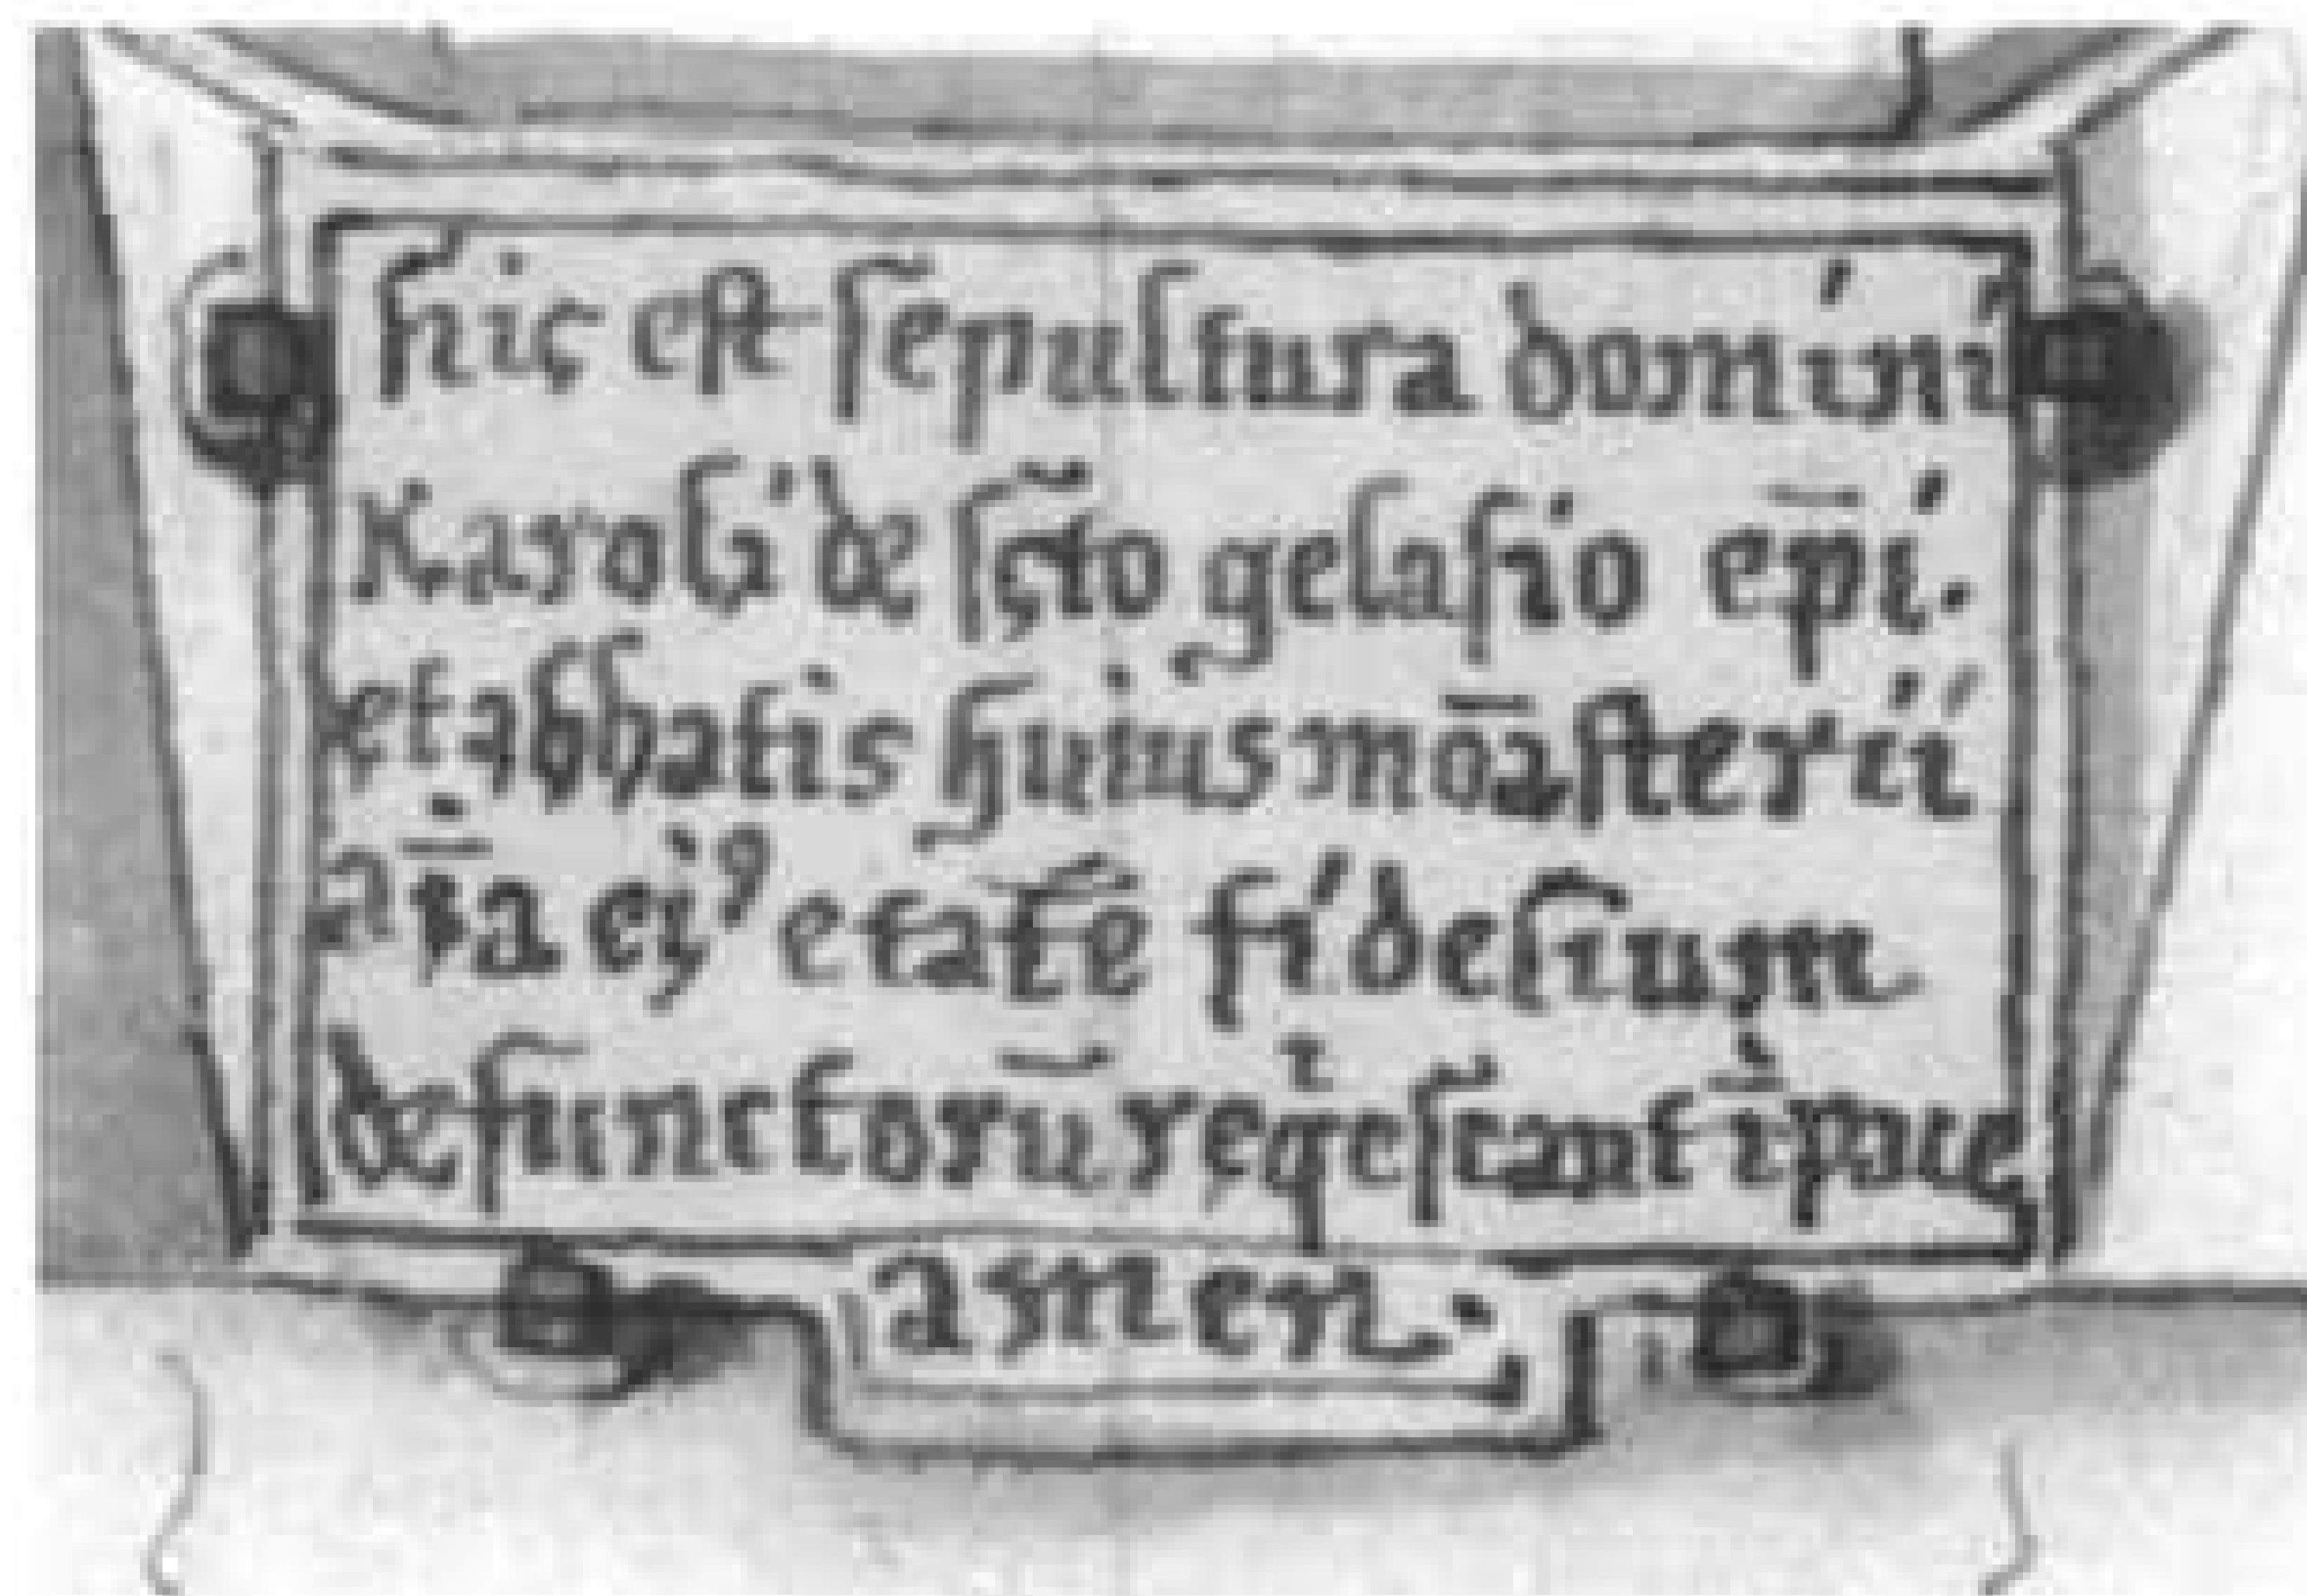 hic est sepultura domini
Karoli de sc̃to gelasio ep̄i.
et abbatis huius mōasterii
aīa eiꝰ et ate͂ fidelium
defunctorū reqͥescant ī pace
amen.